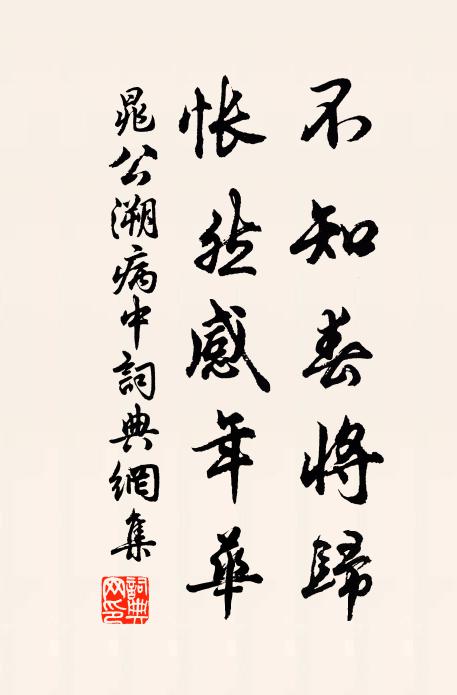 不知春將歸
悵然感年華
晁公溯病中詞典網集
詞典網印